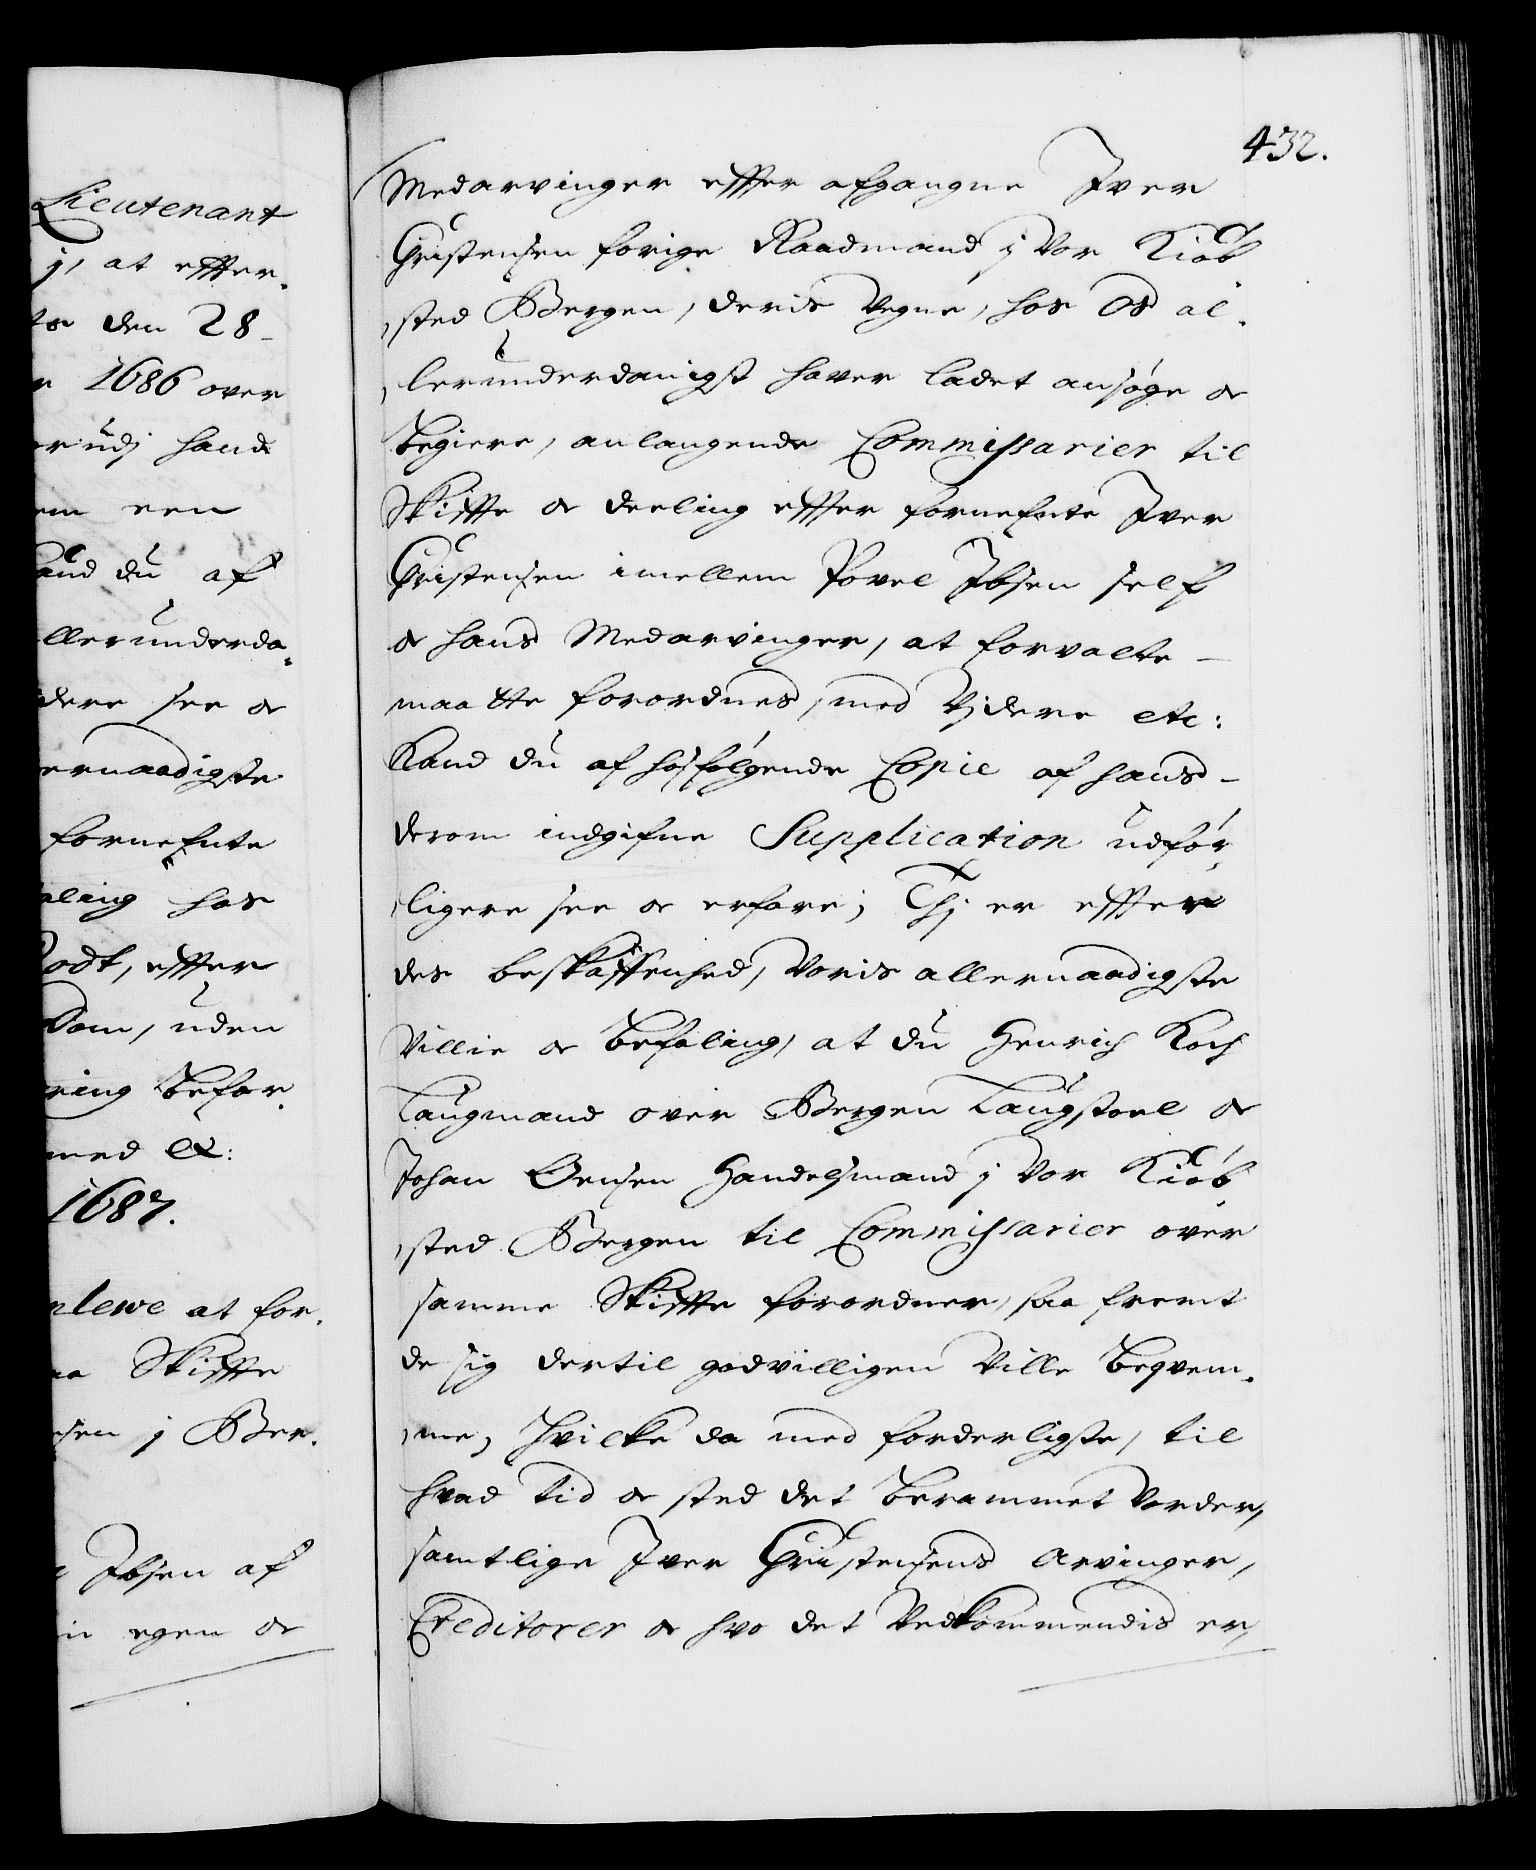 Lieutenant
j, at effter-
den 28
1686 over
udj hand
een
du af
llerunderda-
dere see oc
ernaadigste
fornefnte
aling hos
odt, effter
Dom, uden
ring befor-
med etc:
1687.
at for-
Skiffte
j Ber-
Ibsen af
egen oc
432.
Medarvinger effter afgangne Iver
Christensen forige Raadmand j Vor Kiøb
sted Bergen, deris Vegne, hos Os al-
lerunderdanigst haver ladet ansøge oc
begiere, anlangende Commissarier til
Skiffte oc deeling effter fornefnte Iver
Christensen imellem Povel Ibsen self
oc hans Medarvinger, at forvalte
maatte forordnes, med Videre etc:
Kand du af hosfølgende Copie af hans
derom indgifne Supplication udfør-
ligere see oc erfare; Thj er effter
des beskaffenhed, Voris allernaadigste
Villie oc befaling, at du Henrich Koch
Laugmand over Bergen Laugstoel oc
Johan Oensen Handelsmand j Vor Kiøb
sted Bergen til Commissarier over
samme Skiffte forordner, saa fremt
de sig dertil godvilligen Ville beqvem-
me, Hvilke da med forderligste, til
hvad tid oc sted det berammet Vorder,
samtlige Iver Christensens Arvinger,
Creditorer oc hvo det Vedkommendis er,